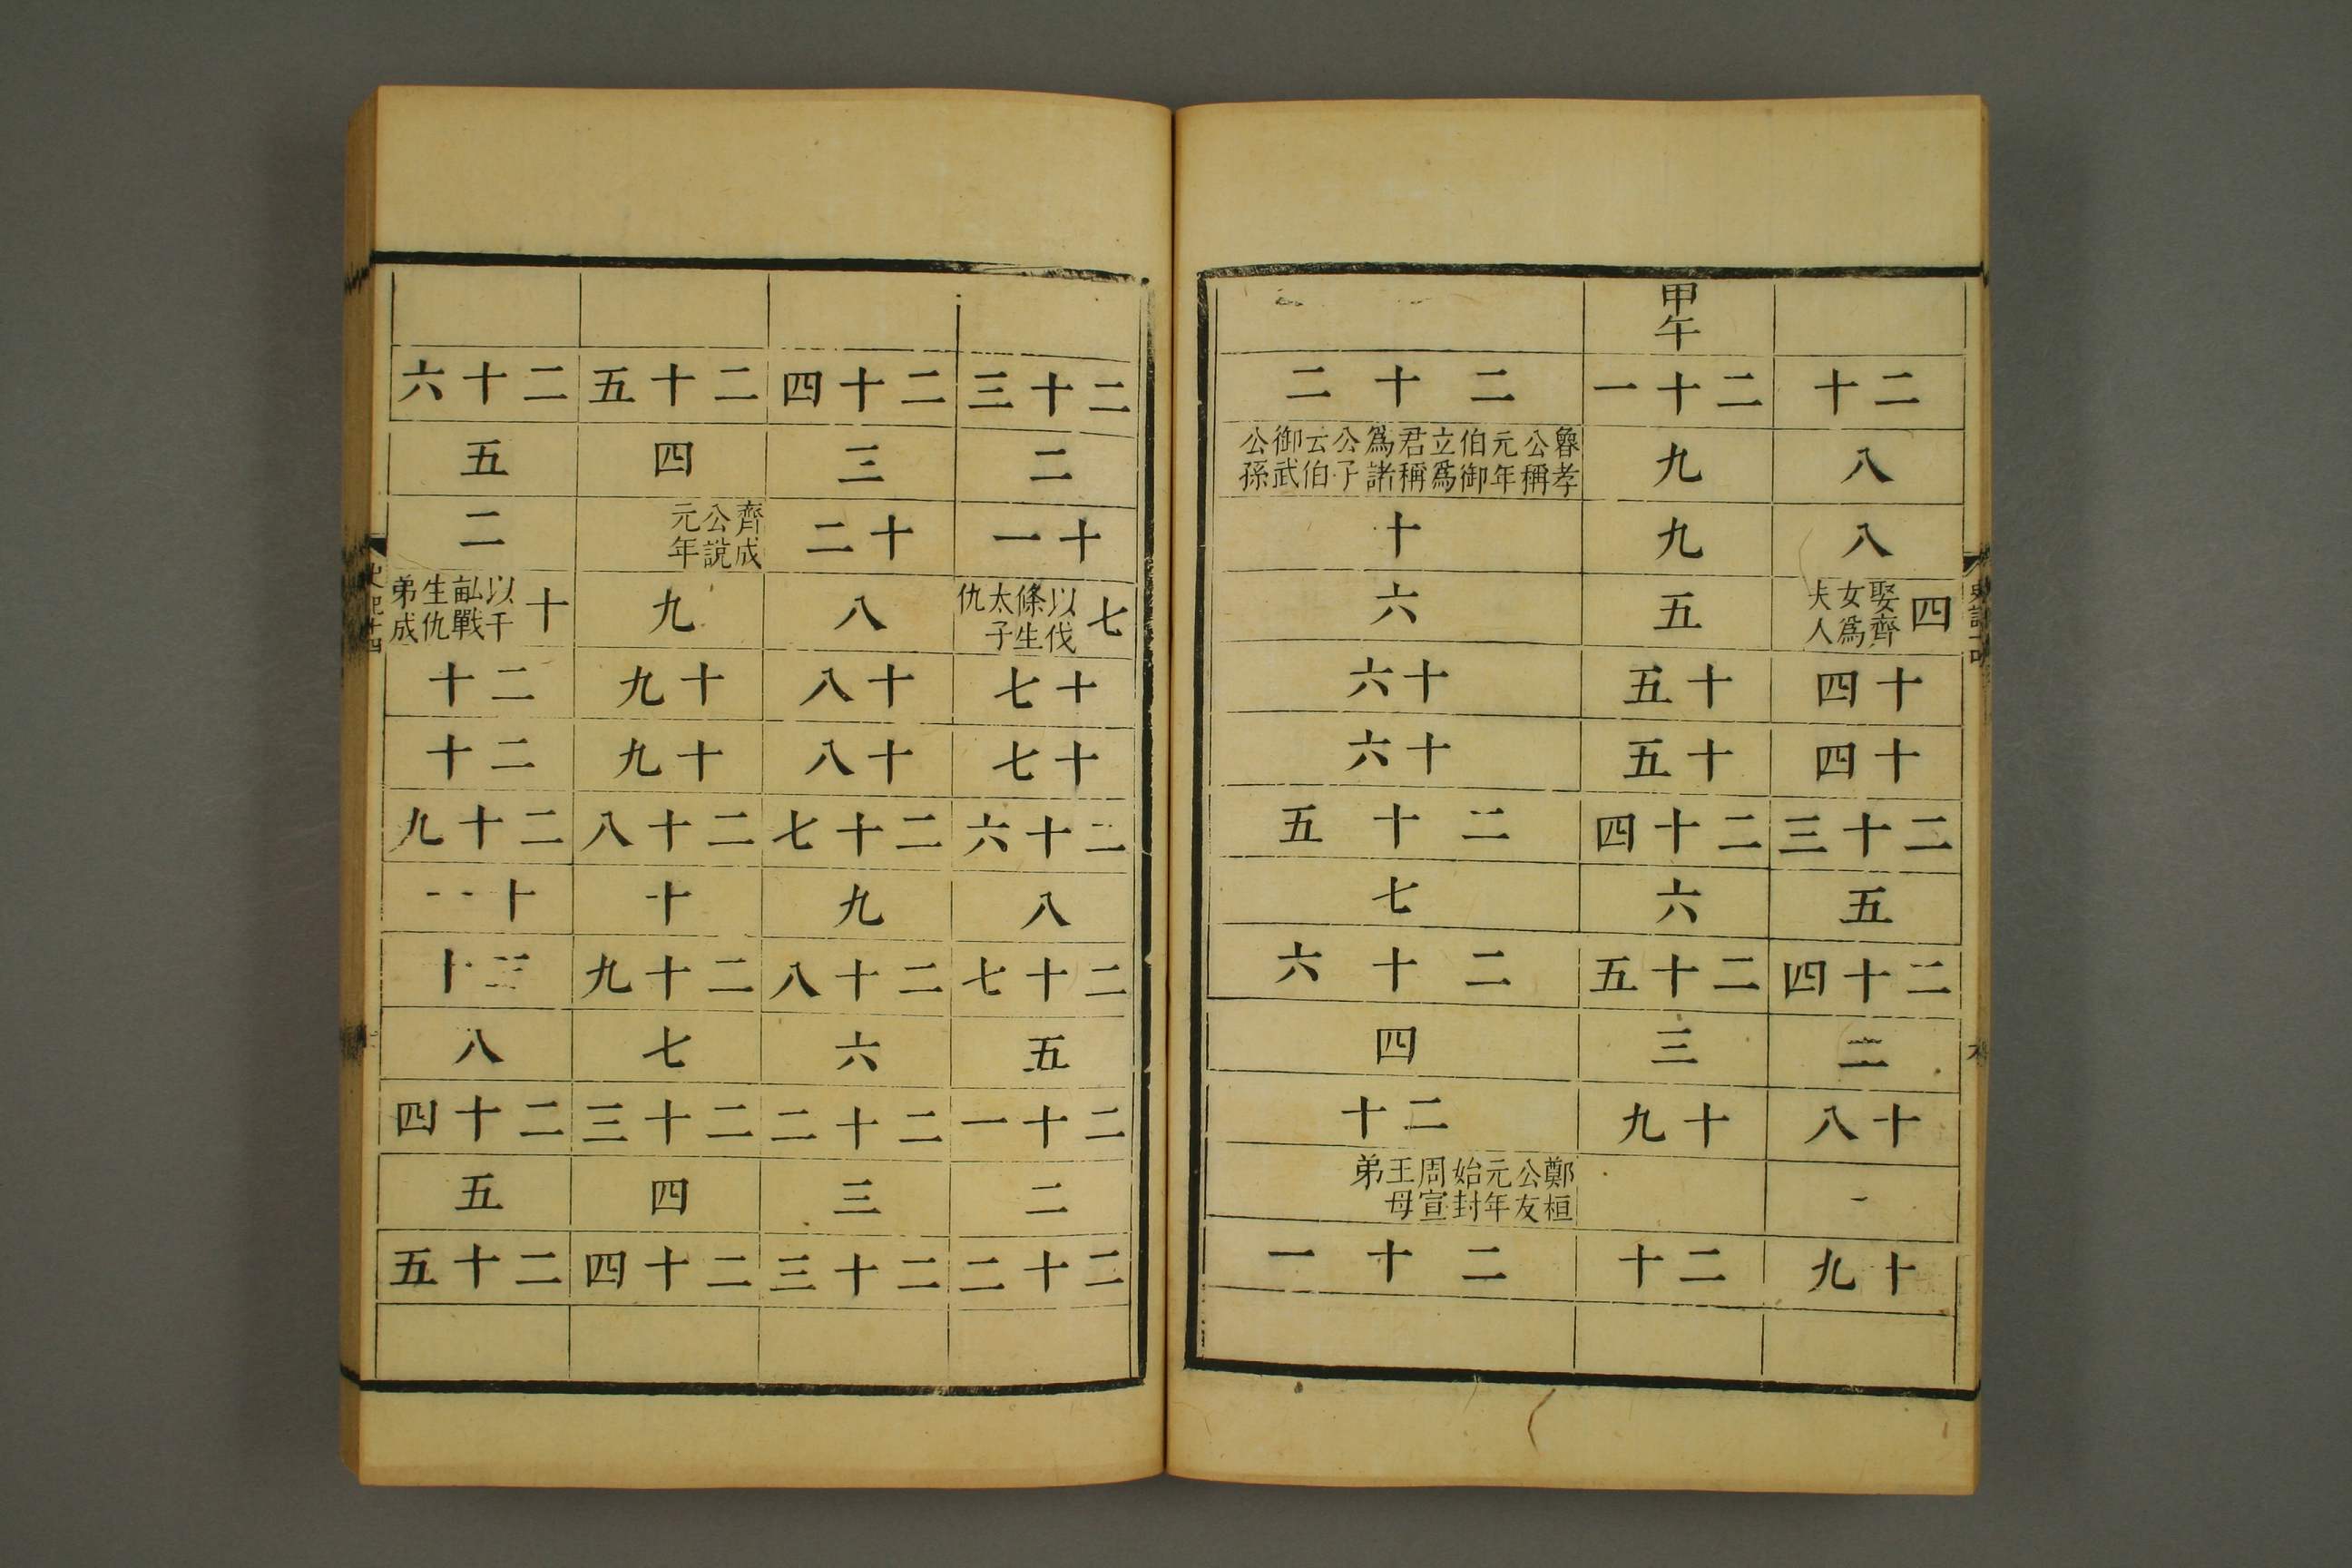 二十
八
八
四 娶齊女爲夫人
十四
十四
二十三
五
二十四
二
十八
十九
甲午
二十一
九
九
五
十五
十五
二十四
六
二十五
三
十九
二十
二十二
魯孝公稱元年伯御立爲君稱爲諸公子云伯御武公孫
十
六
十六
十六
二十五
七
二十六
四
二十
鄭桓公友元年始封周宣王母弟
二十一
二十三
二
十一
七 以伐條生太子仇
十七
十七
二十六
八
二十七
五
二十一
二
二十二
二十四
三
十二
八
十八
十八
二十七
九
二十八
六
二十二
三
二十三
二十五
四
齊成公說元年
九
十九
十九
二十八
十
二十九
七
二十三
四
二十四
二十六
五
二
十 以千畝戰生仇弟成
二十
二十
二十九
十一
三十
八
二十四
五
二十五